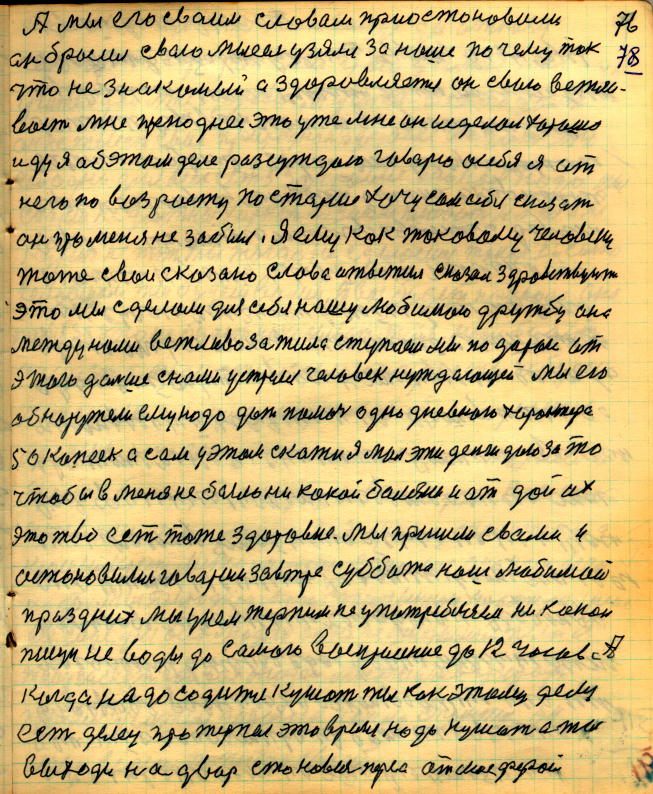 А мы его своим словам приостоновили 76
он бросил свою мысел узяли за наше почему ток 78
что не знакомый а здоровляется он свою вежли-
вост мне преподнес это уже мне он сделал хорошо
иду я об этом деле разсуждаю говарю он себя я от
него по возросту постарше хочу сам себе сказат
он про меня не забыл. Я ему как таковому человеку
тоже свои сказано слова ответил сказал здравствуйте
это мы сделали для себя нашу любимою дружбу она
между нами вежливо зажила ступаем мы по дароги от
этого дальше с нами устрели человек нуждающей мы его
обноружели ему надо дат помоч одно дневного характера
50 копеек а сам у этом скажи я мол эти денги даю за то
чтобы в меня не было ни какой болезни и от дой их
это твое ест тоже здоровие. Мы пришли с вами и
остоновилис говарили завтре суббота наш любимой
праздник мы у нем терпим не употребляем ни какой
пищи не воды до самого воскрисение до 12 часов. А
когда надо содится кушат ты как этому делу
ест делец протерпел это время надо кушат а ты
выходи на двор становься перед атмосферой